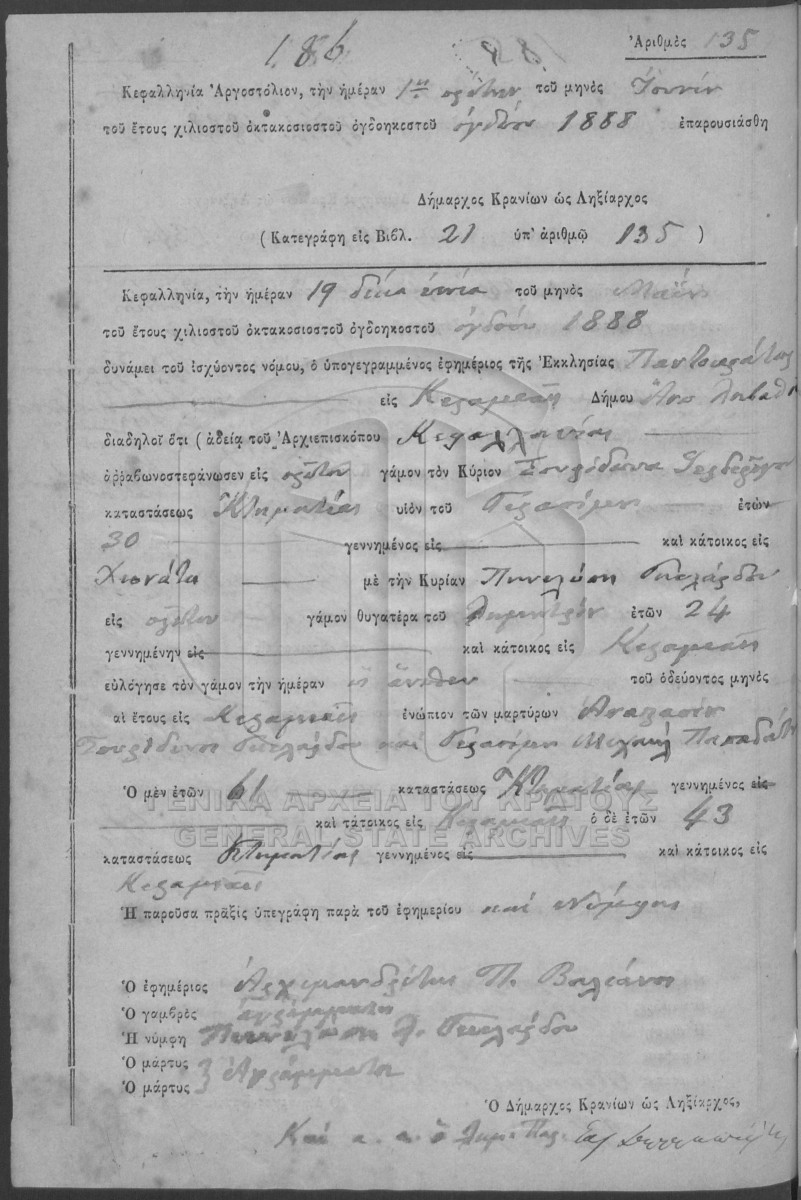 186
Ἀριθμὸς 135
Κεφαλληνία Ἀργοστόλιον, τὴν ἡμέραν 1ην πρώτην τοῦ μηνὸς Ἰουνίου
τοῦ ἔτους χιλιοστοῦ ὀκτακοσιοστοῦ ὀγδοηκοστοῦ ὀγδόου 1888 ἐπαρουσιάσθη
Δήμαρχος Κρανίων ὡς Ληξίαρχος
(Κατεγράφη εἰς Βιβλ. 21 ὑπ' ἀριθμῷ 135)
Κεφαλληνία, τὴν ἡμέραν 19 δέκα ἐννέα τοῦ μηνὸς Μαΐου
τοῦ ἔτους χιλιοστοῦ ὀκτακοσιοστοῦ ὀγδοηκοστοῦ ὀγδόου 1888
δυνάμει τοῦ ἰσχύοντος νόμου, ὁ ὑπογεγραμμένος ἐφημέριος τῆς Ἐκκλησίας Παντοκράτορος
εἰς Κεραμειὲς Δήμου Ἄνω Λειβαθοῦς
διαδηλοῖ ὅτι (ἀδείᾳ τοῦ Ἀρχιεπισκόπου Κεφαλληνίας
ἀρραβωνοστεφάνωσεν εἰς πρῶτον γάμον τὸν Κύριον Σπυρίδωνα
καταστάσεως Κτηματίας υἱὸν τοῦ Γερασίμου ἐτῶν
30 γεννημένος εἰς καὶ κάτοικος εἰς
Χιονάτα μὲ τὴν Κυρίαν Πηνελόπη
εἰς πρῶτον γάμον θυγατέρα τοῦ Δημητρίου ἐτῶν 24
γεννημένην εἰς καὶ κάτοικος εἰς Κεραμειὲς
εὐλόγησε τὸν γάμον τὴν ἡμέραν ὡς ἄνωθεν τοῦ ὁδεύοντος μηνὸς
αἱ ἔτους εἰς Κεραμειὲς ἐνώπιον τῶν μαρτύρων Ἀναστασίου
Σπυρίδωνος καὶ Γερασίμου Μιχαὴλ Παπαδάτου
Ὁ μὲν ἐτῶν 61 καταστάσεως Κτηματίας γεννημένος εἰς
καὶ τάτοικος εἰς Κεραμειὲς ὁ δὲ ἐτῶν 43
ΓΕΝΙΚΑ ΑΡΧΕΙΑ ΤΟΥ ΚΡΑΤΟΥΣ
GENERAL STATE ARCHIVES
καταστάσεως Κτηματίας γεννημένος εἰς καὶ κάτοικος εἰς
Κεραμειὲς
Ἡ παροῦσα πρᾶξις ὑπεγράφη παρὰ τοῦ ἐφημερίου καὶ Νύμφης
Ὁ ἐφημέριος Ἀρχιμανδρίτης Π. Βαλιάνος
Ὁ γαμβρὸς ἀγράμματος
Ἡ νύμφη Πηνελόπη Δ.
Ὁ μάρτυς } Ἀγράμματοι
Ὁ μάρτυς
Ὁ Δήμαρχος Κρανίων ὡς Ληξίαρχος,
Καὶ α. α. ὁ Δημ. Παρ.